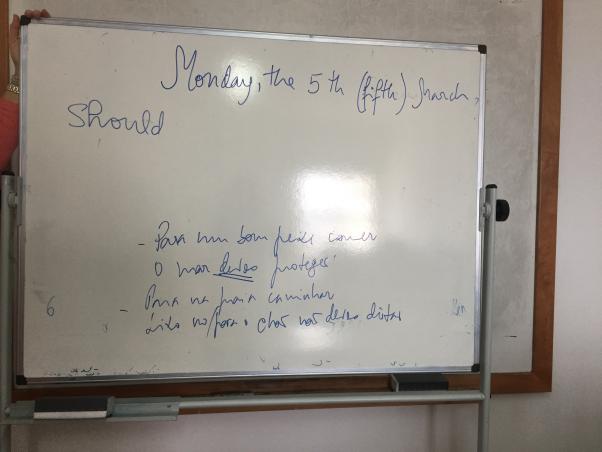 Monday, the 5th (fifth) March,
Should
- Para um bom peixe comer
O mar deves proteger
- Para na praia caminhar
no/para o chão não deves deitar
6